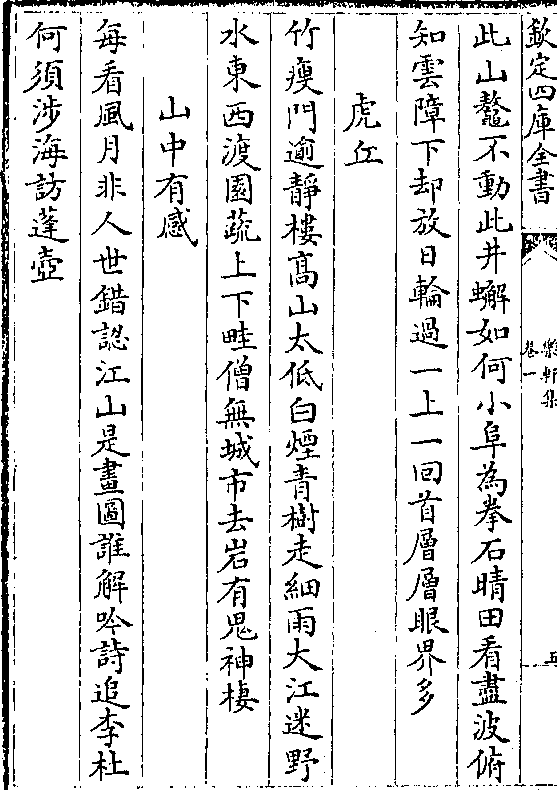 欽定四庫全書
樂軒集
卷一
五
此山鼇不動此井蠏如何小阜為拳石晴田看盡波俯
知雲障下却放日輪過一上一回首層層眼界多
虎丘
竹瘦門逾靜樓高山太低白煙青樹走細雨大江迷野
水東西渡園蔬上下畦僧無城市去岩有鬼神棲
山中有感
每看風月非人世錯認江山是畫圖誰解吟詩追李杜
何須涉海訪蓬壺